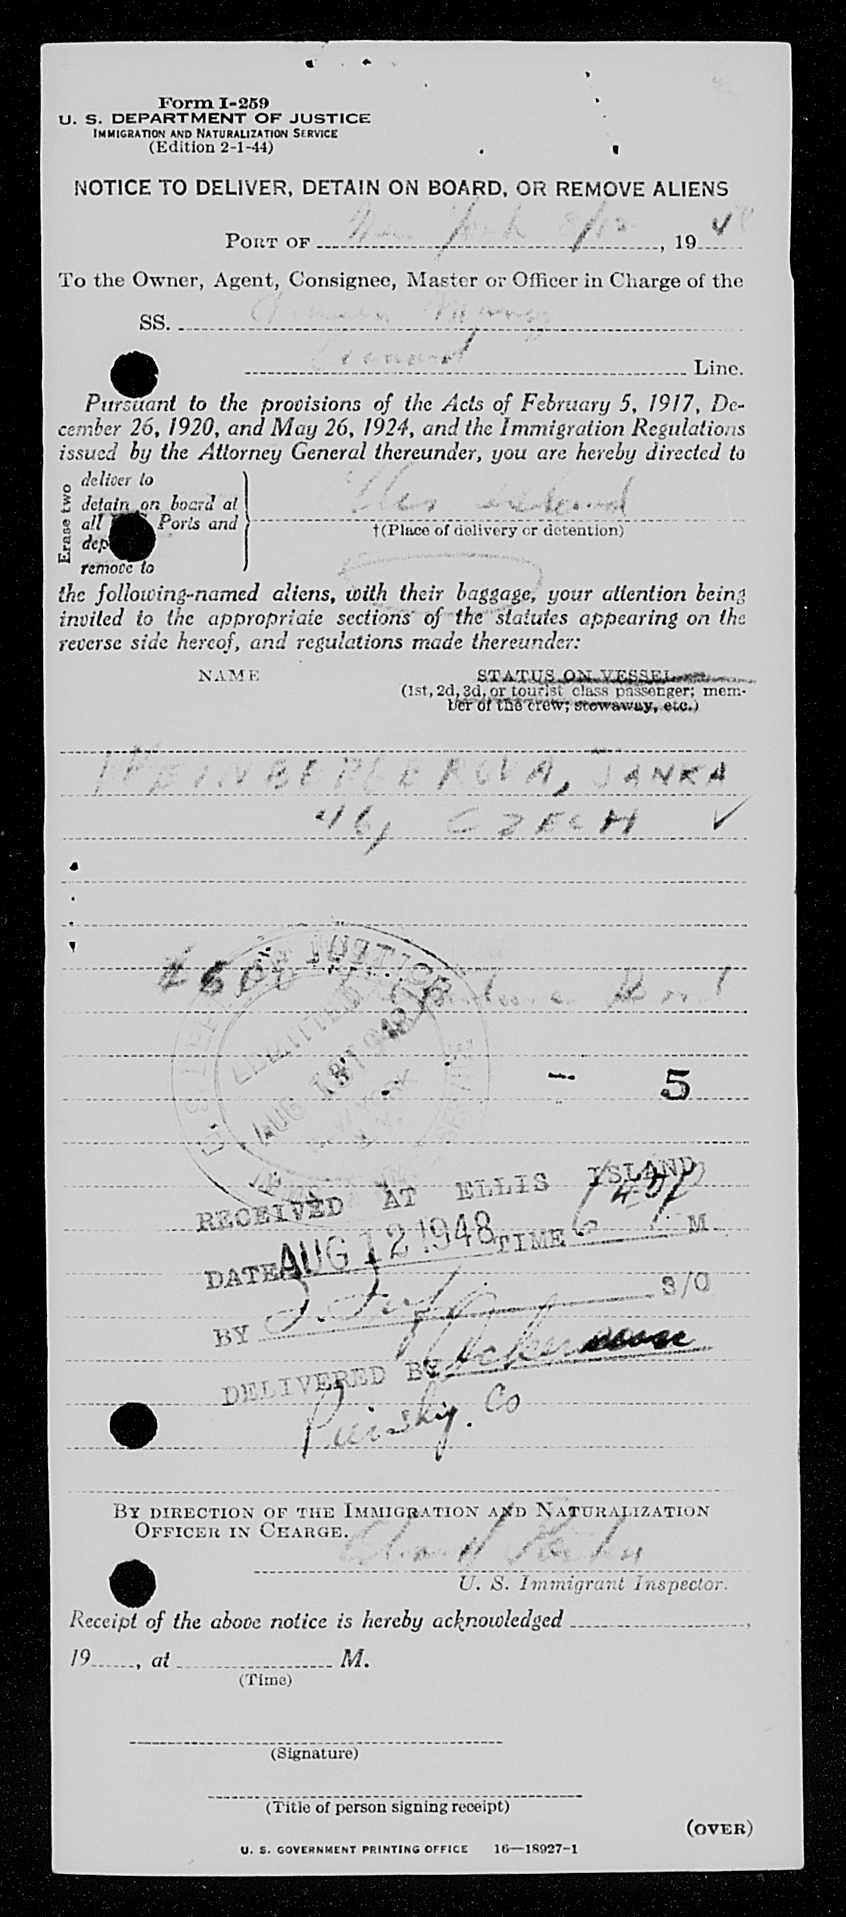 Form I-259
U. S. DEPARTMENT OF JUSTICE
IMMIGRATION AND NATURALIZATION SERVICE
(Edition 2-1-44)
NOTICE TO DELIVER, DETAIN ON BOARD, OR REMOVE ALIENS
PORT OF New York 8/12, 1948
To the Owner, Agent, Consignee, Master or Officer in Charge of the
SS.
Cunard Line.
Pursuant to the provisions of the Acts of February 5, 1917, De-
cember 26, 1920, and May 26, 1924, and the Immigration Regulations
issued by the Attorney General thereunder, you are hereby directed to
Erase two
deliver to
detain on board at
all Ports and
remove to
Ellis Island
†(Place of delivery or detention)
the following-named aliens, with their baggage, your attention being
invited to the appropriate sections of the statutes appearing on the
reverse side hereof, and regulations made thereunder:
NAME
STATUS ON VESSEL
(1st, 2d, 3d, or tourist class passenger; mem-
ber of the crew; stowaway, etc.)
WEINBERGEROVA, JANKA
46, CZECH ✓
$500 Bond
U. S. DEPT. OF JUSTICE
ADMITTED
AUG 13 1948
NEW YORK
N. Y.
- 5
RECEIVED AT ELLIS ISLAND
DATE AUG 12 1948 TIME 640P M.
BY S/O
DELIVERED BY Ackerman
Pinsky. Co
BY DIRECTION OF THE IMMIGRATION AND NATURALIZATION
OFFICER IN CHARGE.
U. S. Immigrant Inspector.
Receipt of the above notice is hereby acknowledged ,
19 , at M.
(Time)
(Signature)
(Title of person signing receipt)
(OVER)
U. S. GOVERNMENT PRINTING OFFICE 16—18927-1